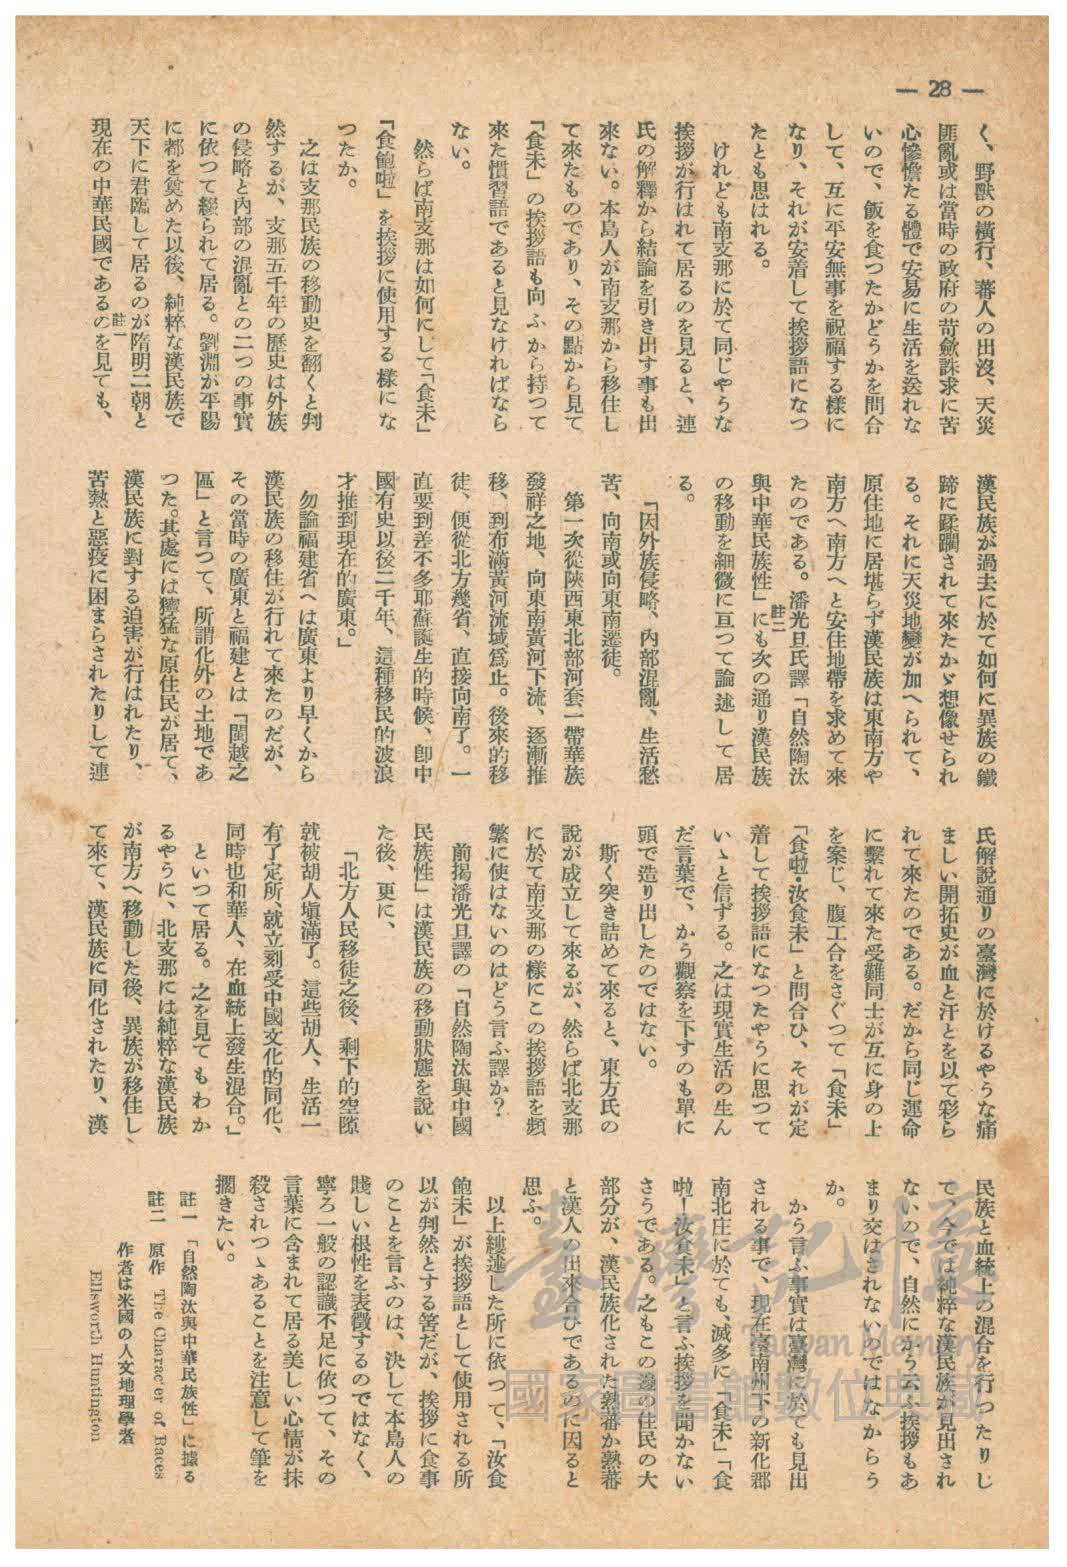 — 28 —
く、野獸の橫行、蕃人の出沒、天災
匪亂或は當時の政府の苛斂誅求に苦
心慘憺たる體で安易に生活を送れな
いので、飯を食つたかどうかを問合
して、互に平安無事を祝福する樣に
なり、それが安着して挨拶語になつ
たとも思はれる。
けれども南支那に於て同じやうな
挨拶が行はれて居るのを見ると、連
氏の解釋から結論を引き出す事も出
來ない。本島人が南支那から移住し
て來たものであり、その點から見て
「食未」の挨拶語も向ふから持つて
來た慣習語であると見なければなら
ない。
然らば南支那は如何にして「食未」
「食飽啦」を挨拶に使用する樣にな
つたか。
之は支那民族の移動史を翻くと判
然するが、支那五千年の歷史は外族
の侵略と內部の混亂との二つの事實
に依つて綴られて居る。劉淵が平陽
に都を奠めた以後、純粹な漢民族で
天下に君臨して居るのが隋明二朝と
註一
現在の中華民國であるのを見ても、
漢民族が過去に於て如何に異族の鐵
蹄に蹂躙されて來たかゞ想像せられ
る。それに天災地變が加へられて、
原住地に居堪らず漢民族は東南方や
南方へ南方へと安住地帶を求めて來
たのである。潘光旦氏譯「自然陶汰
註二
與中華民族性」にも次の通り漢民族
の移動を細微に亘つて論述して居
る。
「因外族侵略、內部混亂、生活愁
苦、向南或向東南遷徒。
第一次從陝西東北部河套一帶華族
發祥之地、向東南黃河下流、逐漸推
移、到布滿黃河流域爲止。後來的移
徒、便從北方幾省、直接向南了。一
直要到差不多耶蘇誕生的時候、卽中
國有史以後二千年、這種移民的波浪
才推到現在的廣東。」
勿論福建省へは廣東より早くから
漢民族の移住が行れて來たのだが、
その當時の廣東と福建とは「閩越之
區」と言つて、所謂化外の土地であ
つた。其處には獰猛な原住民が居て、
漢民族に對する迫害が行はれたり、
苦熱と惡疫に困まらされたりして連
氏解說通りの臺灣に於けるやうな痛
ましい開拓史が血と汗とを以て彩ら
れて來たのである。だから同じ運命
に繫れて來た受難同士が互に身の上
を案じ、腹工合をさぐつて「食未」
「食啦・汝食未」と問合ひ、それが定
着して挨拶語になつたやうに思つて
いゝと信ずる。之は現實生活の生ん
だ言葉で、かう觀察を下すのも單に
頭で造り出したのではない。
斯く突き詰めて來ると、東方氏の
說が成立して來るが、然らば北支那
に於て南支那の樣にこの挨拶語を頻
繁に使はないのはどう言ふ譯か?
前揭潘光旦譯の「自然陶汰與中國
民族性」は漢民族の移動狀態を說い
た後、更に、
「北方人民移徒之後、剩下的空隙
就被胡人塡滿了。這些胡人、生活一
有了定所、就立刻受中國文化的同化、
同時也和華人、在血統上發生混合。」
といつて居る。之を見てもわか
るやうに、北支那には純粹な漢民族
が南方へ移動した後、異族が移住し
て來て、漢民族に同化されたり、漢
民族と血統上の混合を行つたりし
て、今では純粹な漢民族が見出され
ないので、自然にかう云ふ挨拶もあ
まり交はされないのではなからう
か。
かう言ふ事實は臺灣に於ても見出
される事で、現在臺南州下の新化郡
南北庄に於ても、滅多に「食未」「食
啦!汝食未」と言ふ挨拶を聞かない
さうである。之もこの邊の住民の大
部分が、漢民族化された熟蕃か熟蕃
と漢人の出來合ひであるのに因ると
思ふ。
以上縷述した所に依つて、「汝食
飽未」が挨拶語として使用される所
以が判然とする筈だが、挨拶に食事
のことを言ふのは、決して本島人の
賤しい根性を表徵するのではなく、
寧ろ一般の認識不足に依つて、その
言葉に含まれて居る美しい心情が抹
殺されつゝあることを注意して筆を
擱きたい。
註一 「自然陶汰與中華民族性」に據る
註二 原作 The Character of Races
作者は米國の人文地理學者
Ellsworth Huntington
臺灣記憶
Taiwan Memory
國家圖書館數位典藏